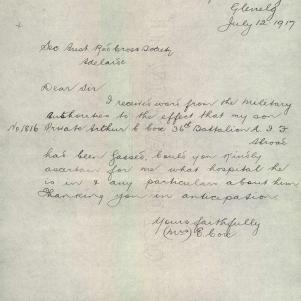 Glenelg
July 12 1917
Sec Aust Red Cross Society
Adelaide
Dear Sir
I received word from the Military
Authorities to the effect that my son
No 1816 Private Arthur C Cox 36th Battalion A I F
abroad
had been Gassed. Could you Kindly
ascertain for me what hospital he
is in & any particulars about him
Thanking you in anticipation
Yours faithfully
(Mrs) E. Cox